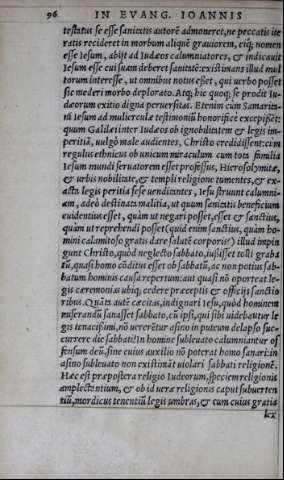 96 IN EVANG. IOANNIS
testatus se esse sanitatis autorē admoneret, ne peccatis ite
ratis recideret in morbum aliquē grauiorem, eiq́; nomen
esse Iesum, abijt ad Iudæos calumniatores, & indicauit
Iesum esse cui suam deberet sanitatē: existimans illud mul
torum interesse, ut omnibus notus eßet, qui uerbo posset
sic mederi morbo deplorato. Atq; hic quoq; se prodit Iu-
dæorum exitio digna peruersitas. Etenim cùm Samarita-
ni Iesum ad mulierculæ testimoniū honorifice excepißēt:
quum Galilæi inter Iudæos ob ignobilitatem & legis im-
peritiā, uulgò male audientes, Christo credidissent: cùm
regulus ethnicus ob unicum miraculum cum tota familia
Iesum mundi seruatorem esset professus, Hierosolymitæ,
& urbis nobilitate, & templi religione tumentes, & ex-
acta legis peritia sese uenditantes, Iesu struunt calumni-
am, adeò destinata malitia, ut quum sanitatis beneficium
euidentius esset, quàm ut negari posset, esset & sanctius,
quàm ut reprehendi posset (quid enim sanctius, quàm ho-
mini calamitoso gratis dare salutē corporis?) illud impin
gunt Christo, quòd neglecto sabbato, iußisset tolli graba
tū, quasi homo cōditus esset ob sabbatū, ac non potius sab-
batum hominis causa repertum: aut quasi nō oporteat le-
gis cæremonias ubiq; cedere præceptis & officijs sanctio
ribus. Quāta autē cæcitas, indignari Iesu, quòd hominem
miserandū sanasset sabbato, cū ipsi, qui sibi uidebātur le
gis tenacißimi, nō uererētur asino in puteum delapso suc-
currere die sabbati: In homine subleuato calumniantur of
fensum deū, sine cuius auxilio nō poterat homo sanari: in
asino subleuato non existimāt uiolari sabbati religionē.
Hæc est præpostera religio Iudæorum, speciem religionis
amplectentium, & ob id ueræ religionis caput subuerten
tiū, mordicus tenentiū legis umbras, & cum cuius gratia
lex